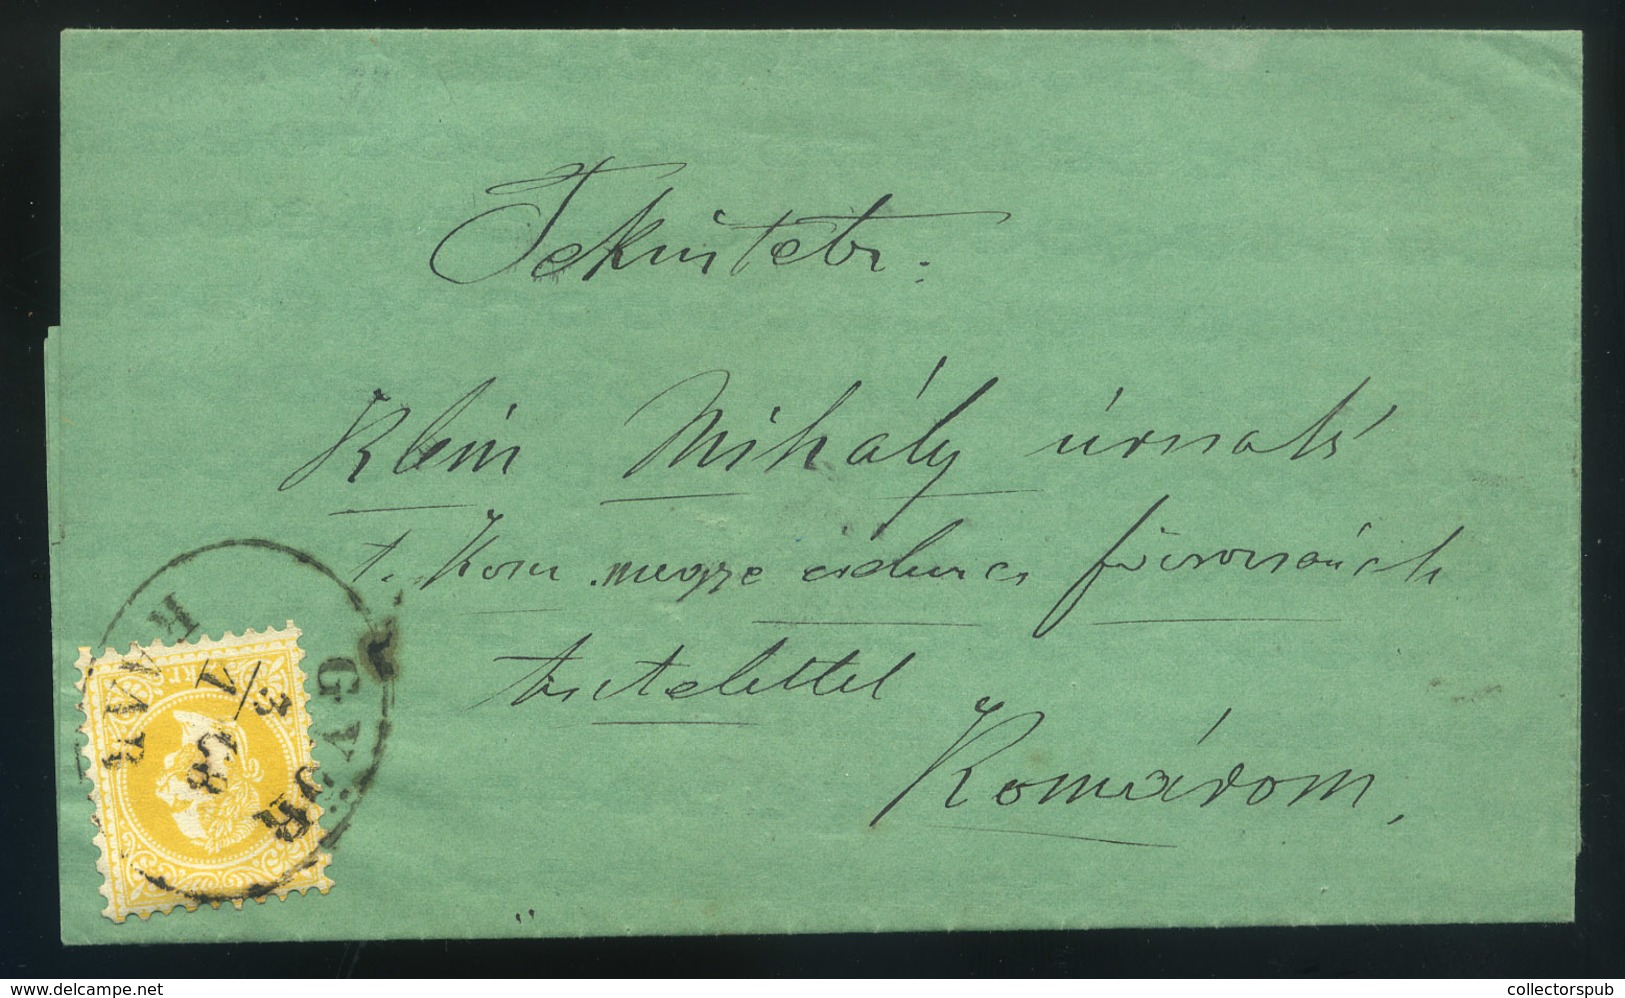 Tekintetes.
Klein Mihály úrnak
t. Kom megye érdemes főorvosának
tisztelettel
Komárom.
GYŐR
RAAB
3/1
68
www.delcampe.net
collectorspub